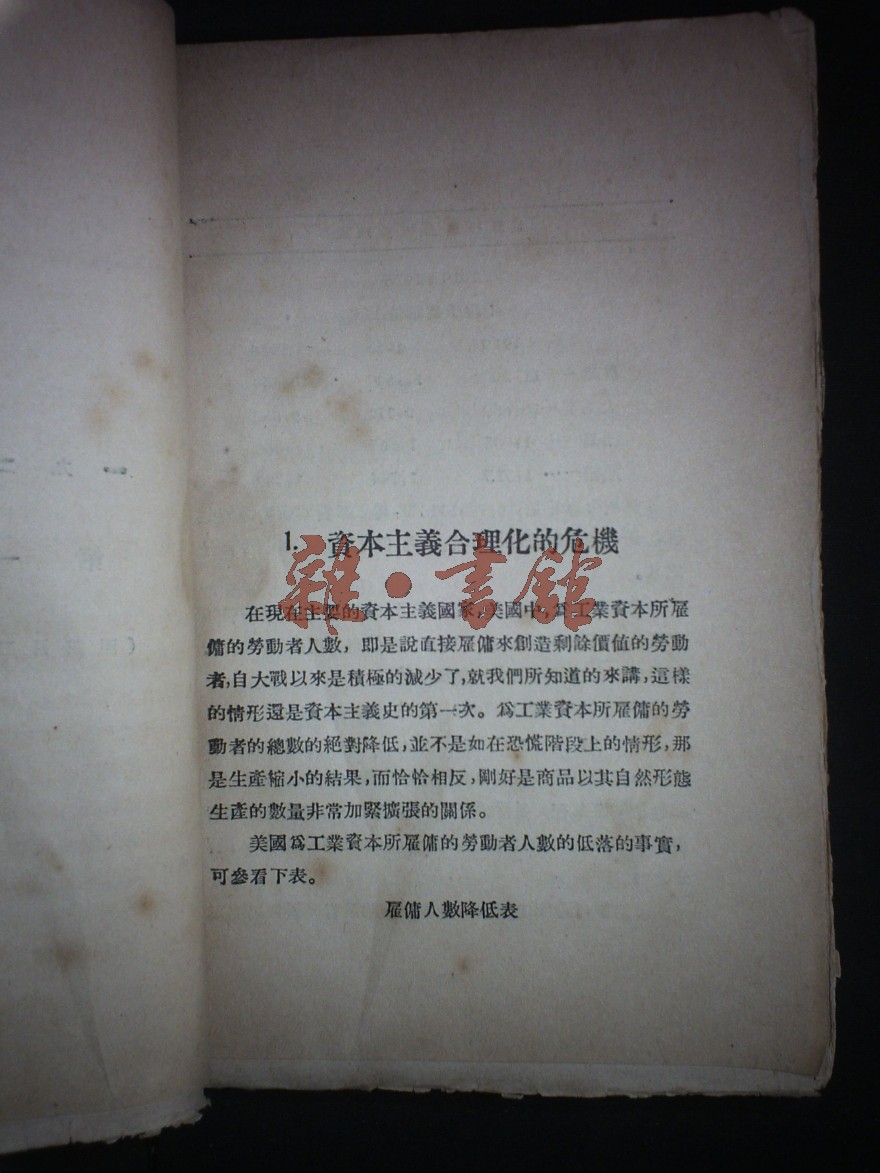 1. 資本主義合理化的危機
在現在主要的資本主義國家,美國中,爲工業資本所雇
傭的勞動者人數,即是說直接雇傭來創造剩餘價值的勞動
者,自大戰以來是積極的減少了,就我們所知道的來講,這樣
的情形還是資本主義史的第一次。爲工業資本所雇傭的勞
動者的總數的絕對降低,並不是如在恐慌階段上的情形,那
是生產縮小的結果,而恰恰相反,剛好是商品以其自然形態
生產的數量非常加緊擴張的關係。
美國爲工業資本所雇傭的勞動者人數的低落的事實,
可參看下表。
雇傭人數降低表
雜·書館